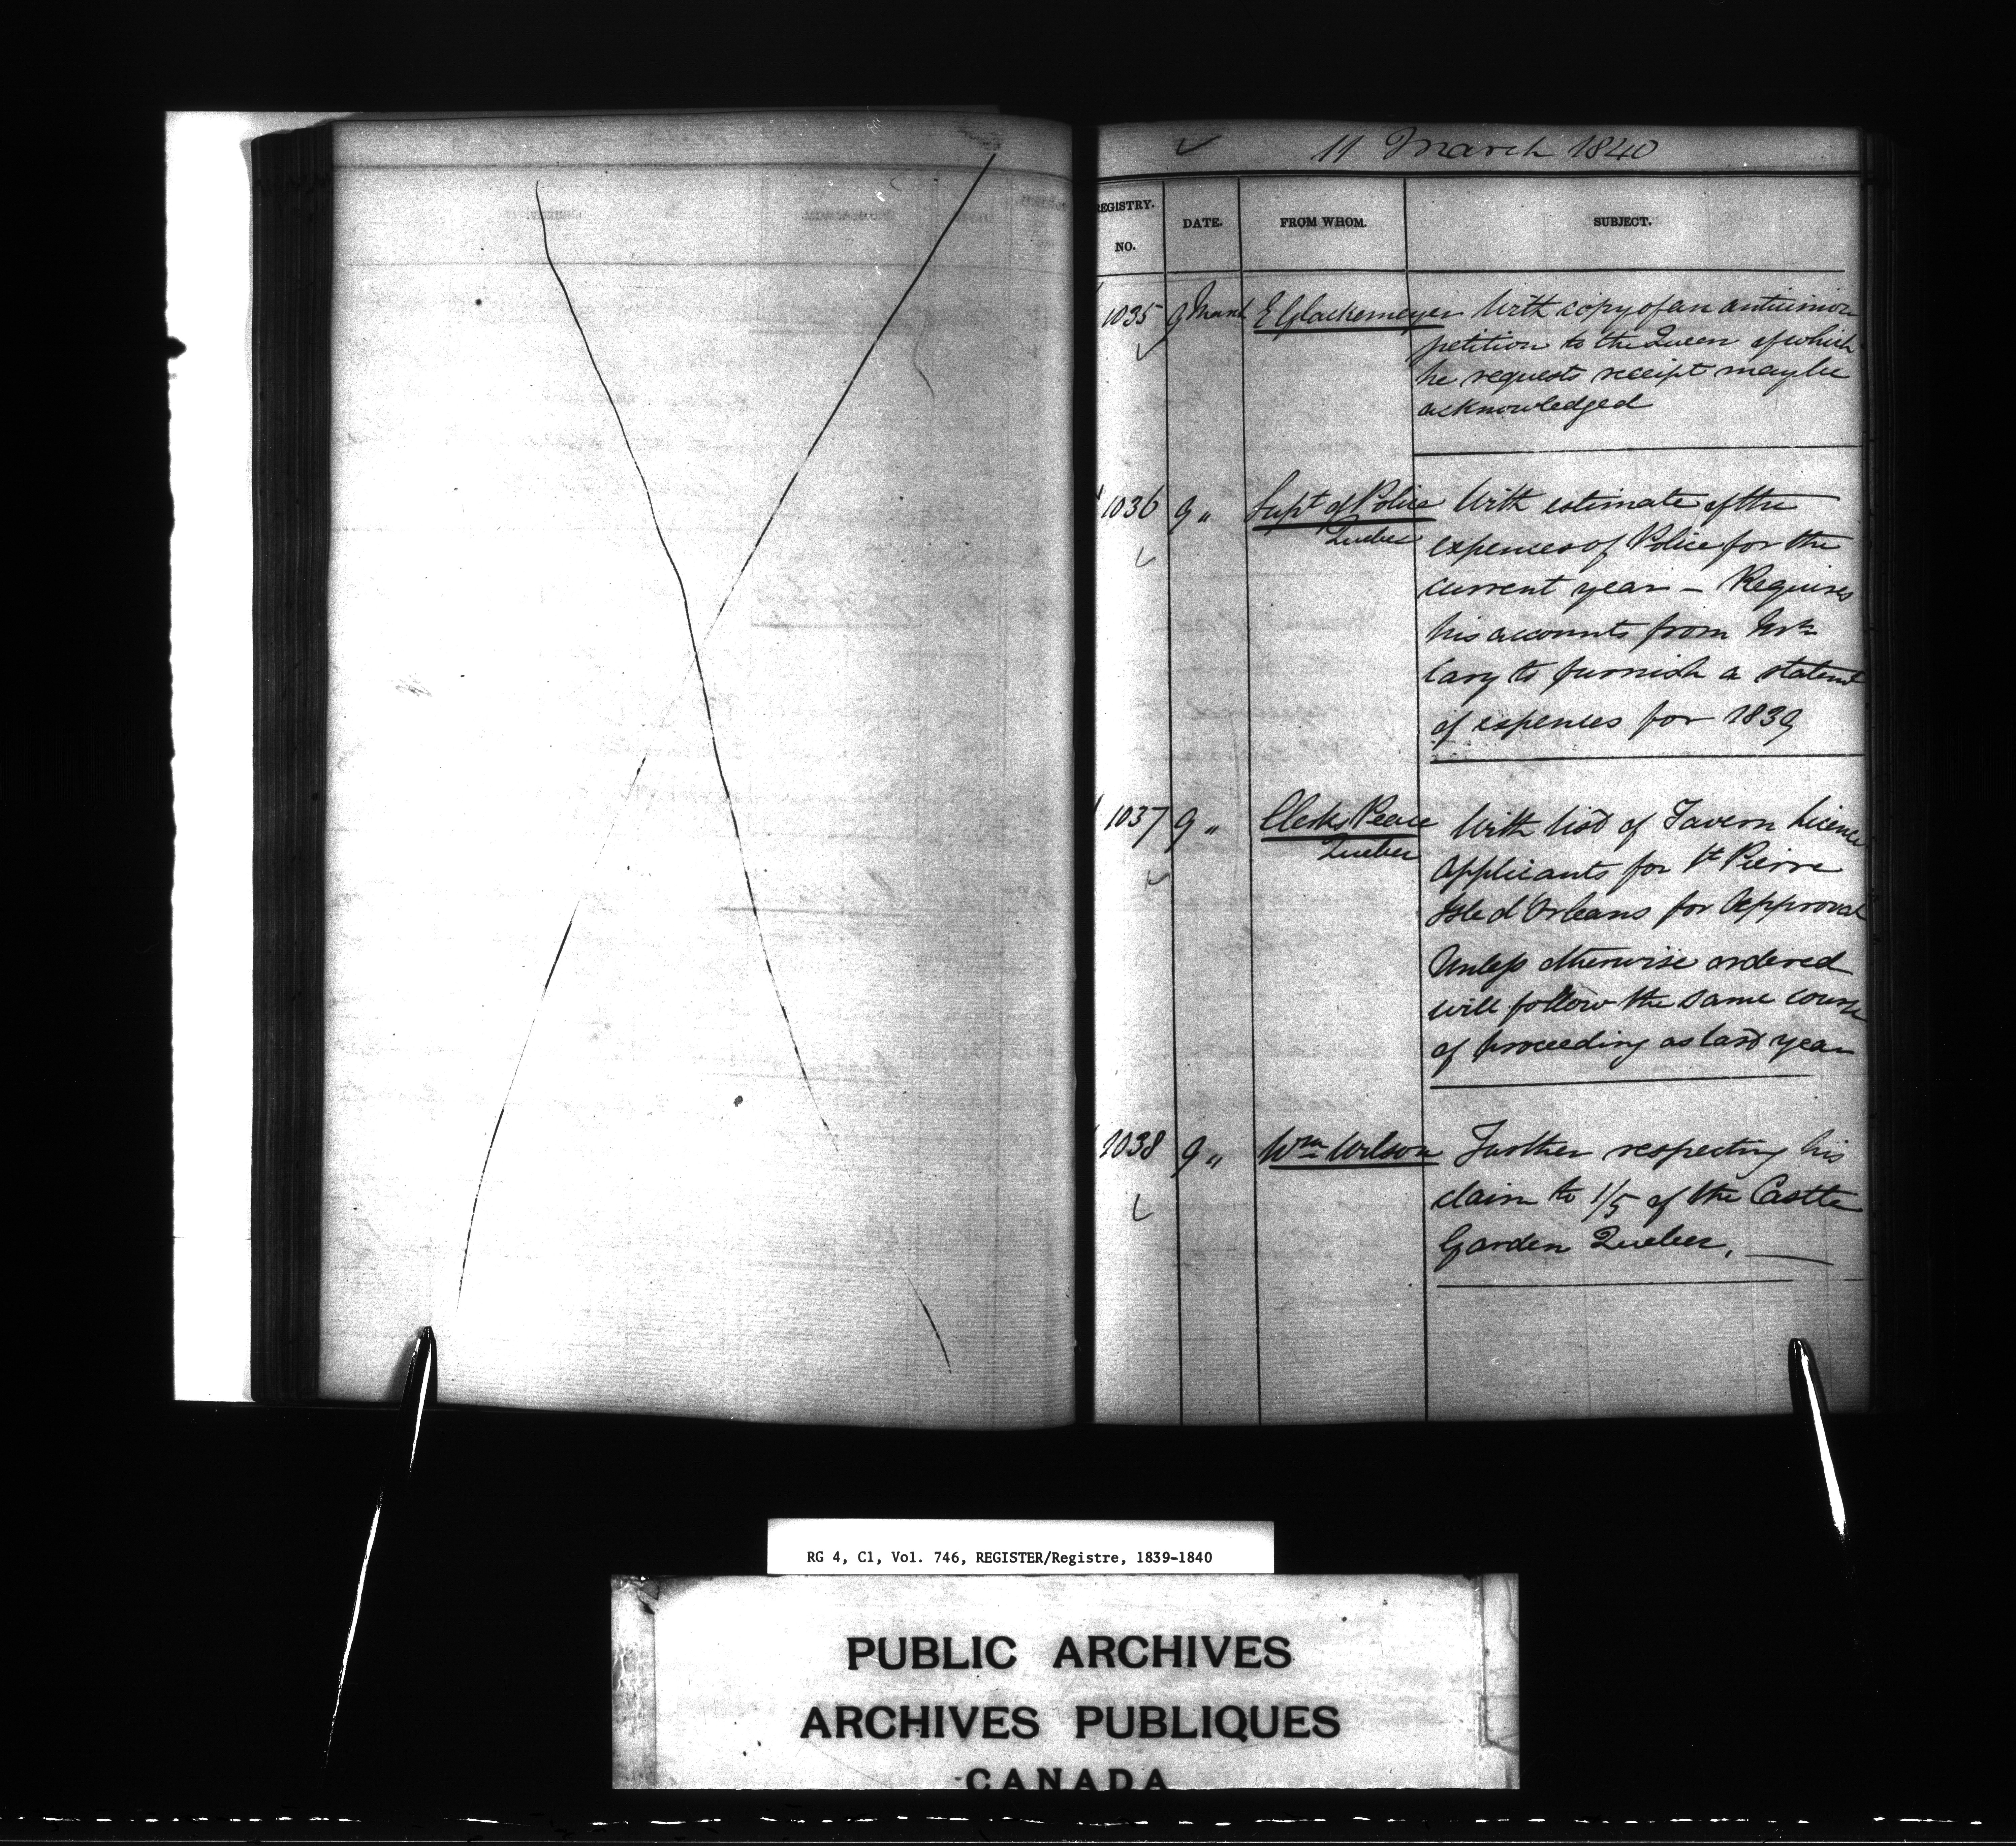 11 March 1840
REGISTRY. NO. DATE. FROM WHOM. SUBJECT.
1035 9 March E Glackemeyer With copy of an antiunion
petition to the Queen of which
he requests receipt may be
acknowledged
1036 9 " Supt of Police Quebec With estimate of the
expences of Police for the
current year – Requires
his accounts from
Cary to furnish a statemt
of expenses for 1839
1037 9 " Clerks Peace Quebec With list of Tavern licence
applicants for St Pierre
Isle d'Orleans for approval
Unless otherwise ordered
will follow the same course
of proceeding as last year
1038 9 " Wm Wilson Further respecting his
claim to 1/5 of the Castle
Garden Quebec. —
RG 4, C1, Vol. 746, REGISTER/Registre, 1839-1840
PUBLIC ARCHIVES
ARCHIVES PUBLIQUES
CANADA